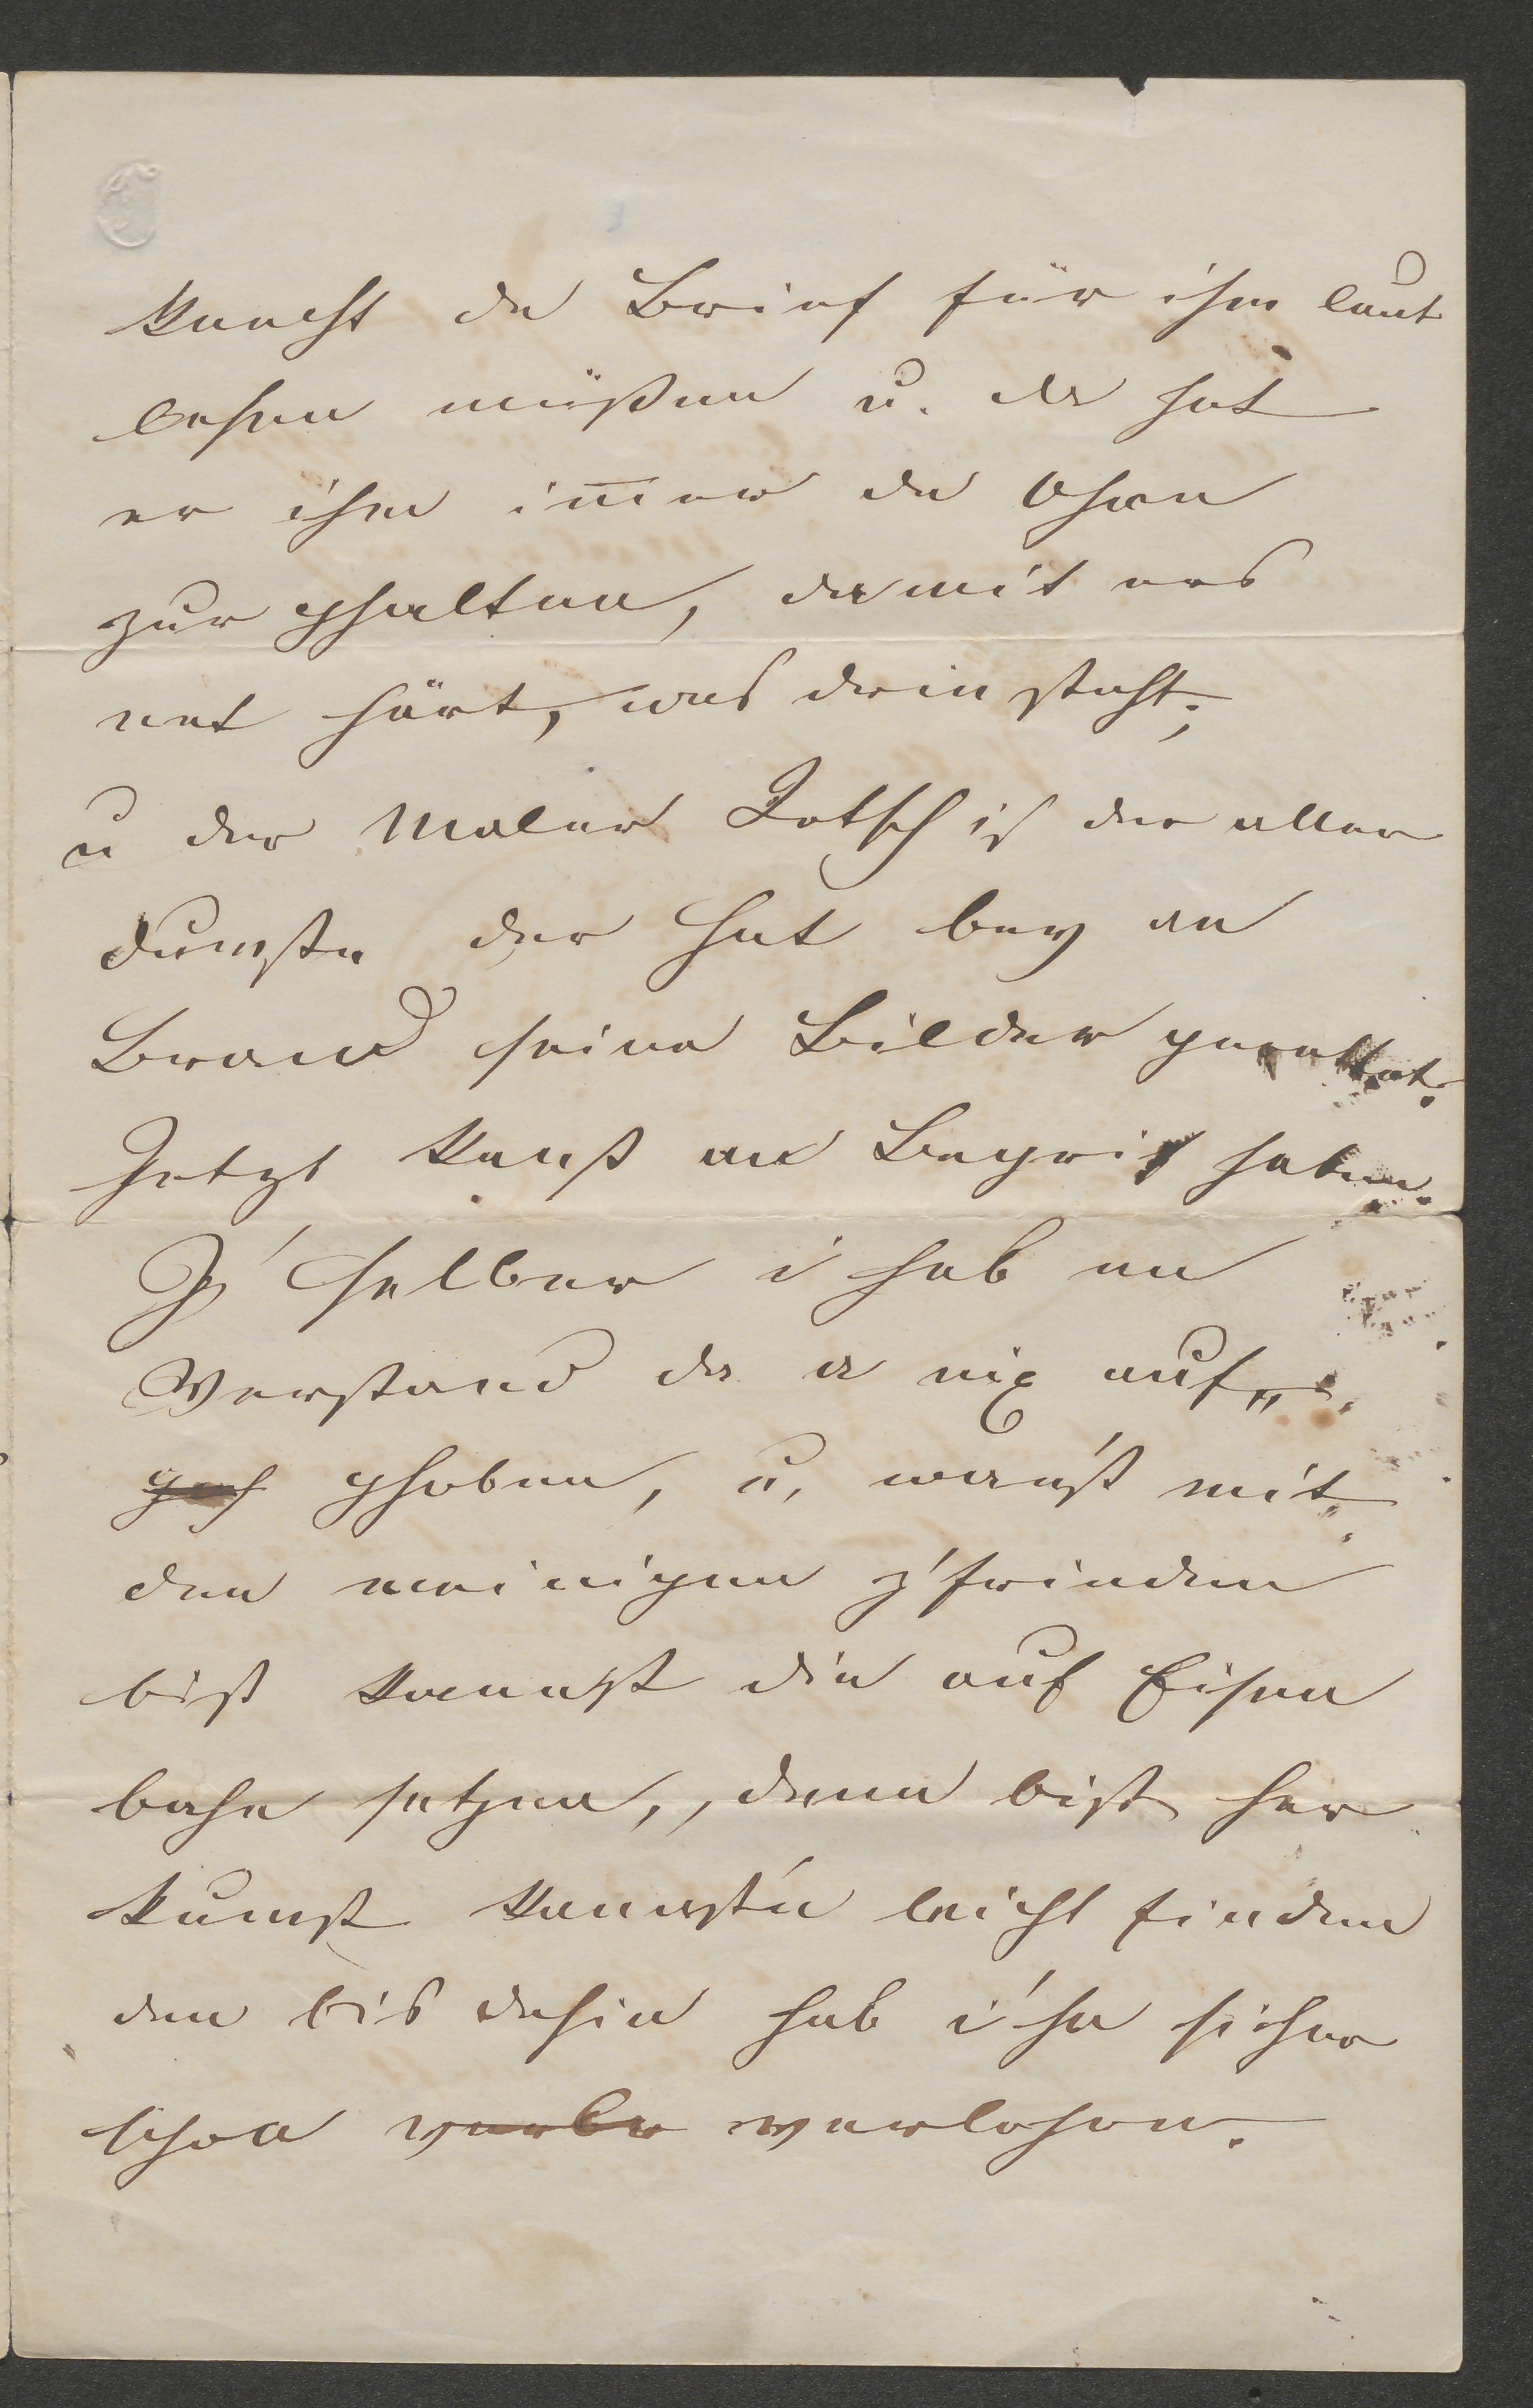 Knecht de Brief für ihm laut
lesen müßen u. da hat
er ihm im̅er de Ohren
zur ghalten, damit ers
net härt, was drin steht;
u der Maler Zotsch is der aller
dumste der hat bey an
Brand seine Bilder gerettet.
Jetzt kanst an Begrif haben.
I' selber i hab an
Verstand da a nix auf„
geh ghoben, u, wan'st mit
den meinigen z'frieden
bist kannst die auf Eisen
bahn setzen,, denn bist her
kumst kannst'n leicht finden
den bis dahin hab i'hn sicher
schon verlo verlohren.